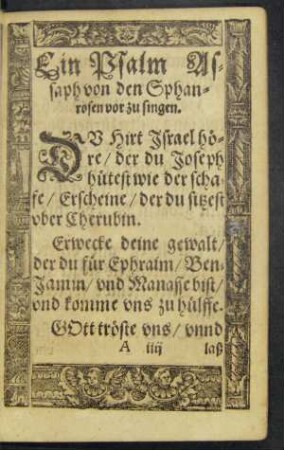 Ein Psalm As-
saph von den Sphan-
rosen vor zu singen.
DV Hirt Israel hö-
re / der du Joseph
hütest wie der scha-
fe / Erscheine / der du sitzest
vber Cherubin.
Erwecke deine gewalt /
der du für Ephraim / Ben-
Jamin / vnd Manasse bist /
vnd komme vns zu hülffe.
GOtt tröste vns / vnnd
A iiij laß